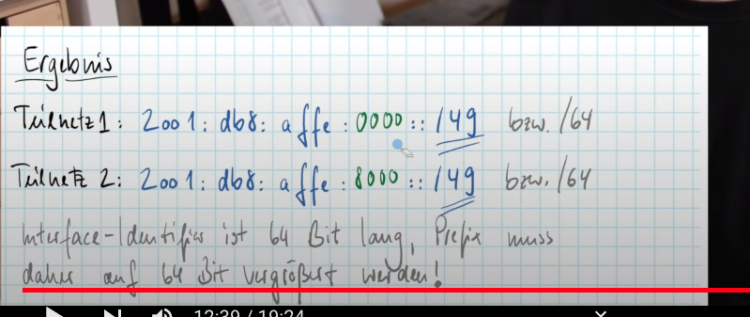 Ergebnis
Teilnetz 1: 2001: db8: affe: 0000:: /49 bzw. /64
Teilnetz 2: 2001: db8: affe: 8000:: /49 bzw. /64
Interface-Identifier ist 64 Bit lang, Prefix muss
daher auf 64 Bit vergrößert werden!
12:39 / 19:24